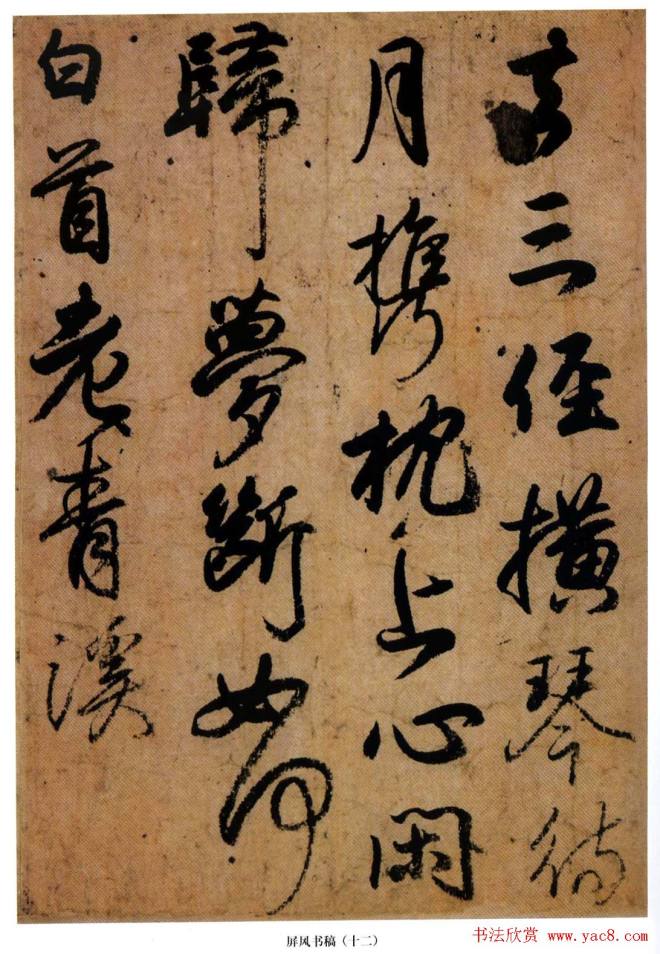 三徑橫琴待
月攜枕上心閑
歸夢斷如何
白首老青溪
屏风书稿（十二）
书法欣赏
www.yac8.com